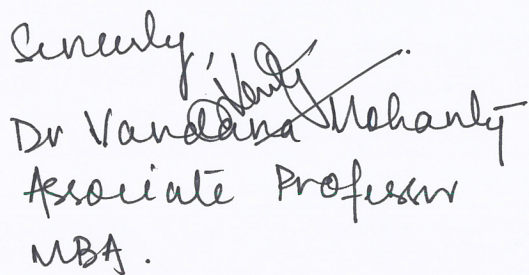 Sincerely,
Dr Vandana Mohanty
Associate Professor
MBA.